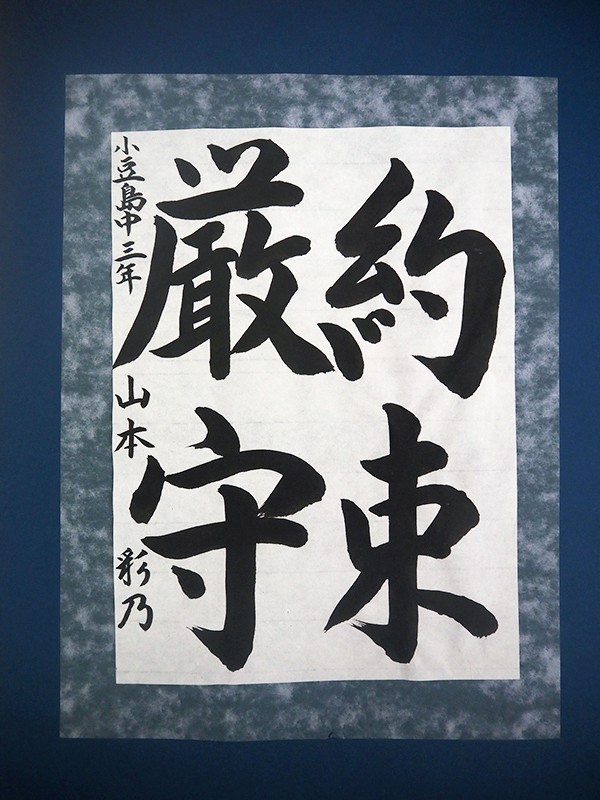 約束
厳守
小豆島中三年 山本 彩乃